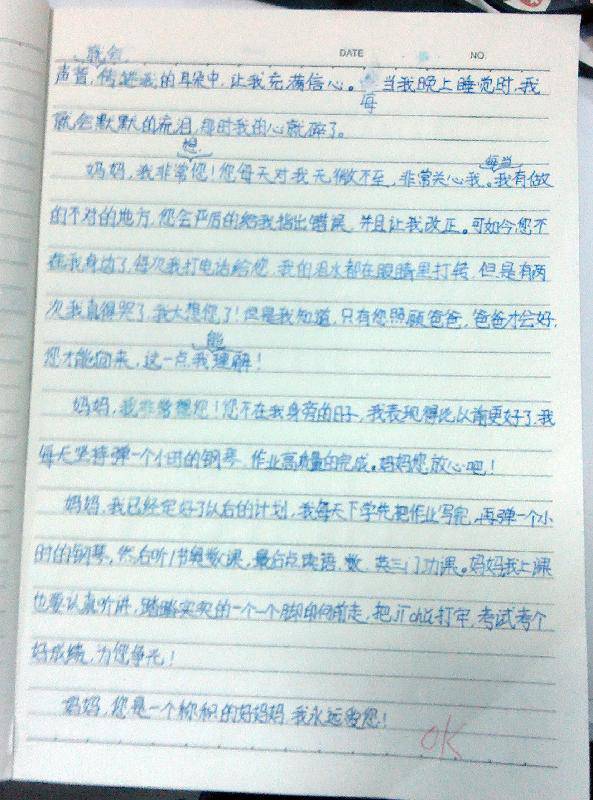 DATE NO.
就会
声音,传进我的耳朵中,让我充满信心。每当我晚上睡觉时,我
就会默默的流泪,那时我的心就碎了。
妈妈,我非常想您!您每天对我无微不至,非常关心我。每当我有做
的不对的地方,您会严厉的给我指出错误,并且让我改正。可如今您不
在我身边了,每次我打电话给您,我的泪水都在眼睛里打转,但是有两
次我真得哭了,我太想您了!但是我知道,只有您照顾爸爸,爸爸才会好,
您才能回来,这一点我能理解!
妈妈,我非常想您!您不在我身旁的日子,我表现得比以前更好了,我
每天坚持弹一个小时的钢琴,作业高质量的完成。妈妈您放心吧!
妈妈,我已经定好了以后的计划,我每天下学先把作业写完,再弹一个小
时的钢琴,然后听1节奥数课,最后点读语、数、英三门功课。妈妈我上课
也要认真听讲,踏踏实实的一个一个脚印向前走,把jī chǔ打牢,考试考个
好成绩,为您争光!
妈妈,您是一个称职的好妈妈,我永远爱您!
OK